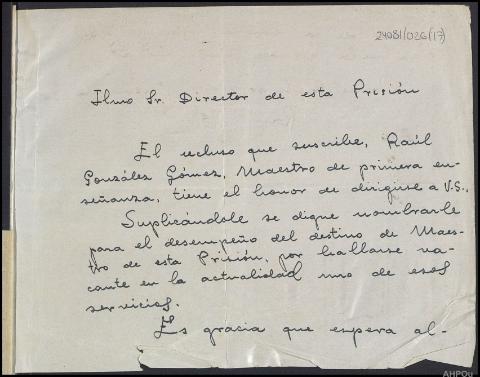 24081/026(17)
Ilmo Sr. Director de esta Prisión
El recluso que suscribe, Raúl
González Gómez, Maestro de primera en-
señanza, tiene el honor de dirigirse a V.S.,
Suplicándole se digne nombrarle
para el desempeño del destino de Maes-
tro de esta Prisión, por hallarse va-
cante en la actualidad uno de esos
servicios.
Es gracia que espera al-
AHPOu